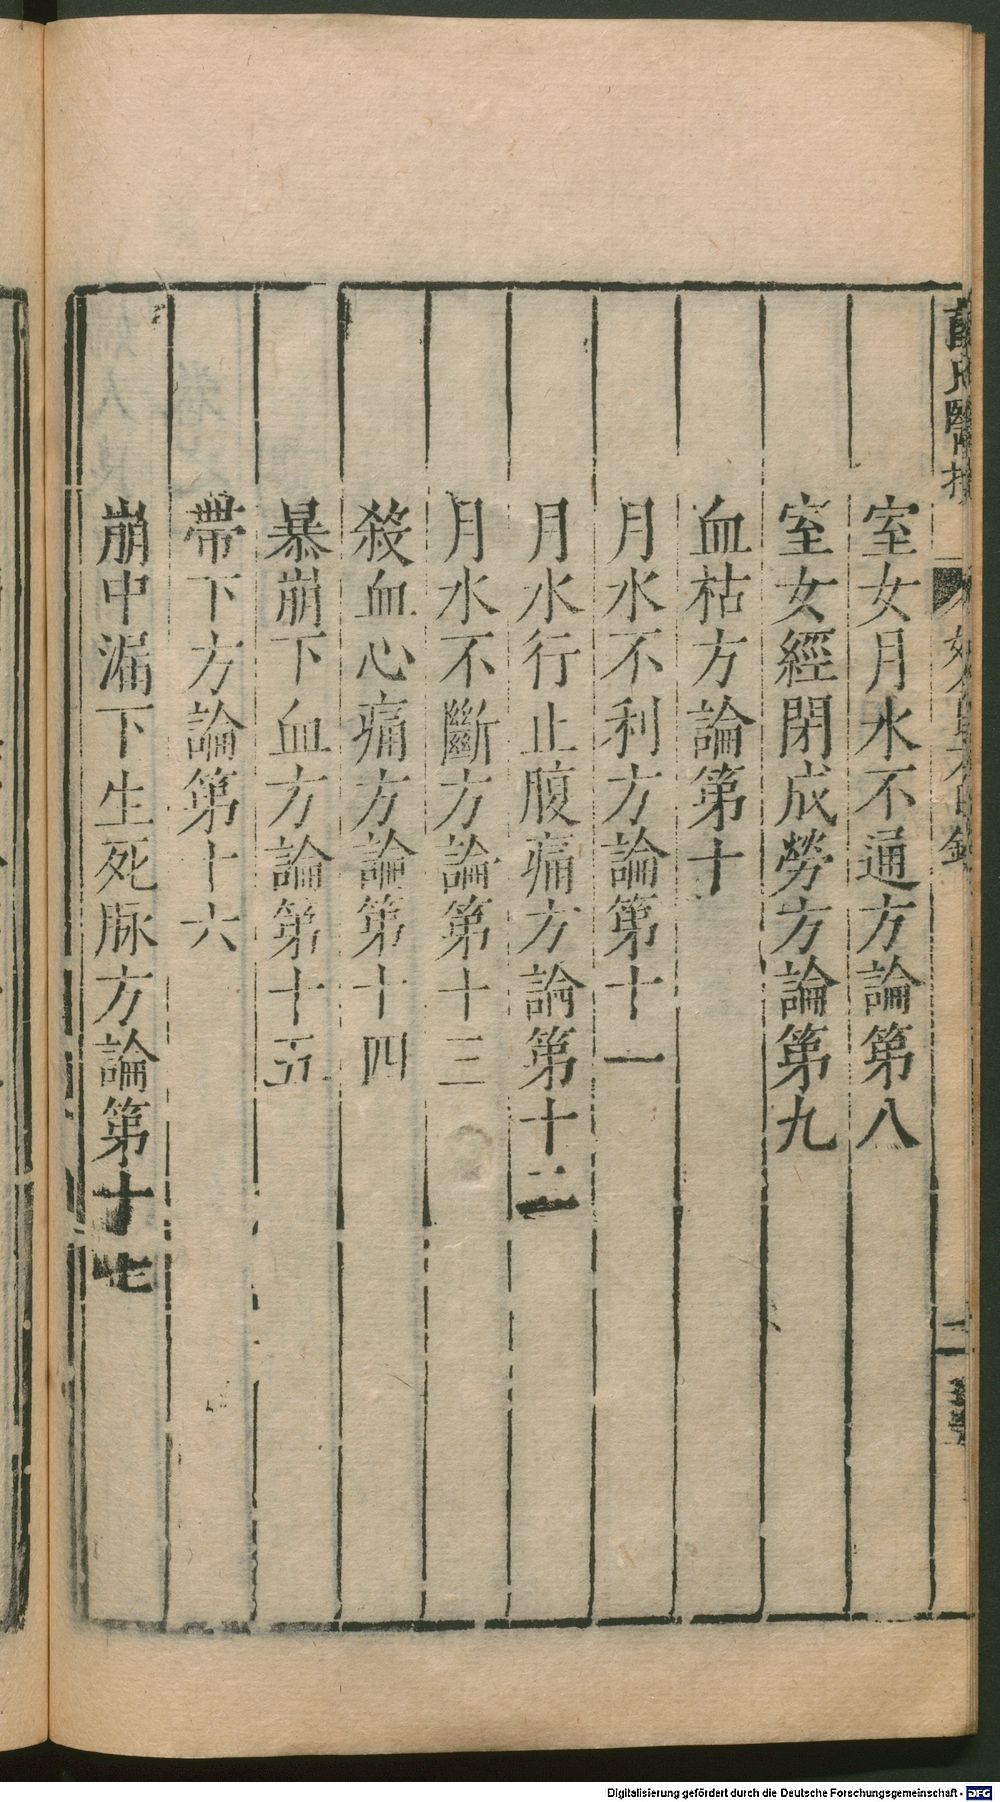 室女月水不通方論第八
室女經閉成勞方論第九
血枯方論第十
月水不利方論第十一
月水行止腹痛方論第十二
月水不斷方論第十三
殺血心痛方論第十四
暴崩下血方論第十五
帶下方論第十六
崩中漏下生死脉方論第十七
Digitalisierung gefördert durch die Deutsche Forschungsgemeinschaft - DFG